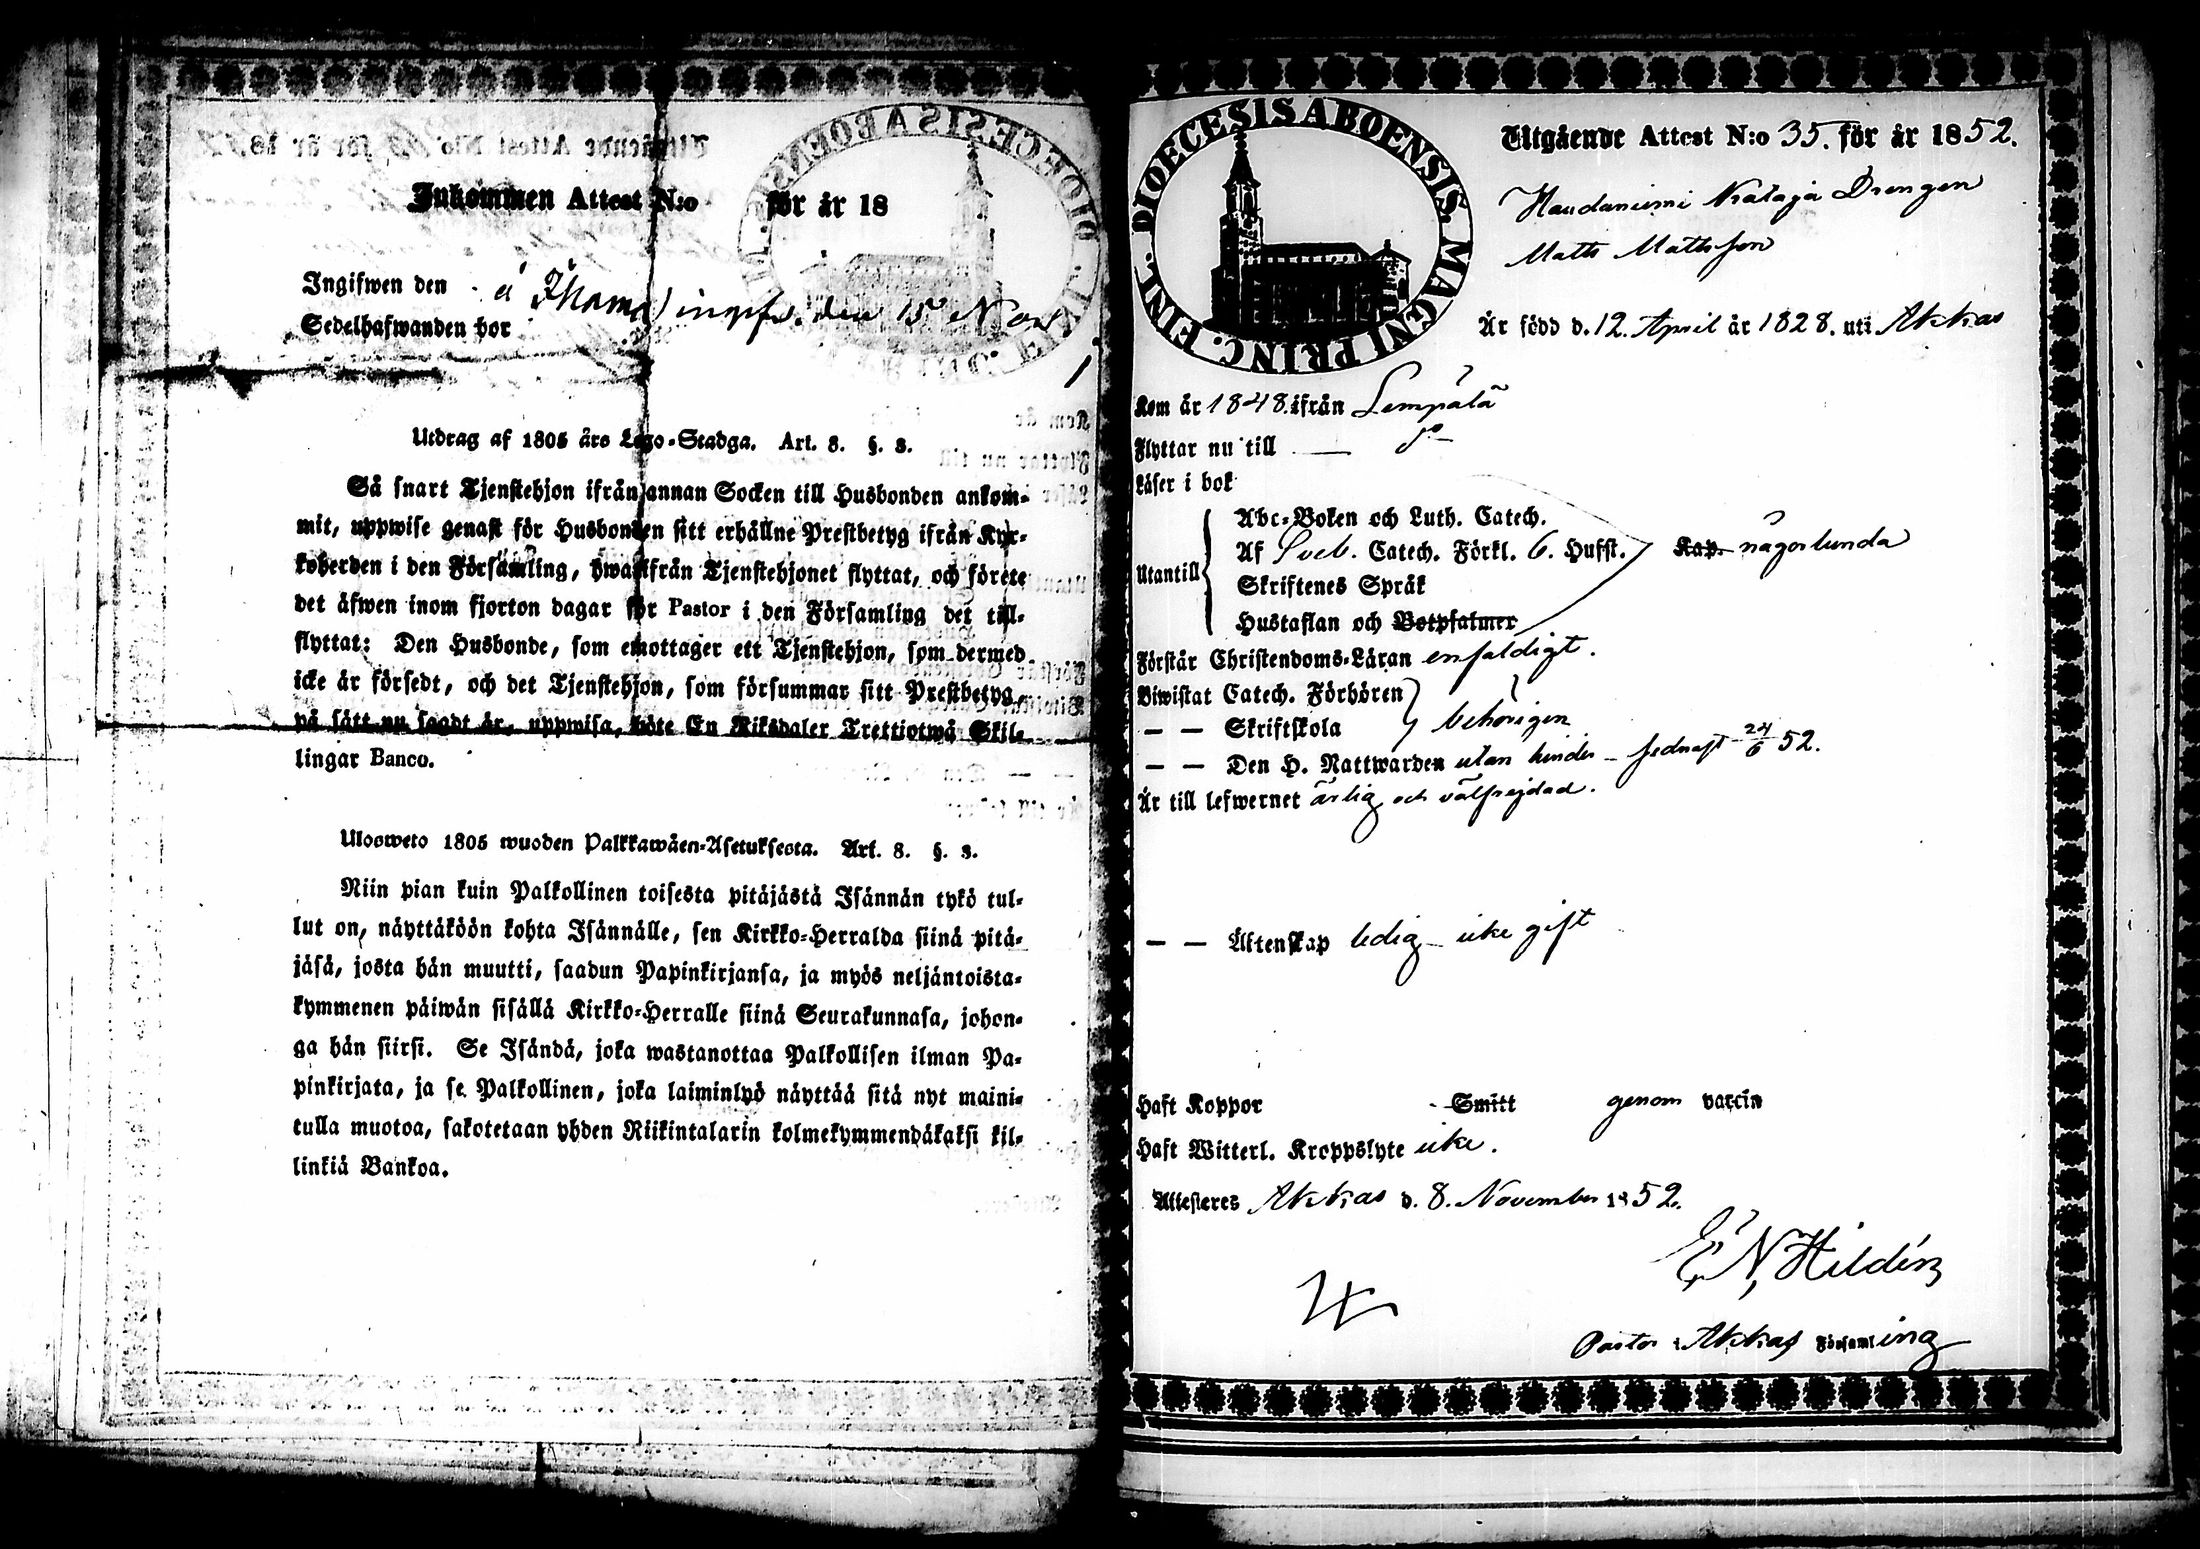 Inkommen Attest N:o för år 18
Ingifwen den
Sedelhafwanden bor
ingifv. den 15 Nov
Utdrag af 1805 års Lego-Stadga. Art. 8. §. 3.
Så snart Tjenstehjon ifrån annan Socken till Husbonden ankom-
mit, uppwise genast för Husbonden sitt erhållne Prestbetyg ifrån Kyr-
koherden i den Församling, hwarifrån Tjenstehjonet flyttat, och förete
det äfwen inom fjorton dagar för Pastor i den Församling det till-
flyttat: Den Husbonde, som emottager ett Tjenstehjon, som dermed
icke är försedt, och det Tjenstehjon, som försummar sitt Prestbetyg,
på sätt nu sagdt är, uppwisa, böte En Riksdaler Trettiotwå Skil-
lingar Banco.
Ulosweto 1805 wuoden Palkkawäen-Asetuksesta. Art. 8. §. 3.
Niin pian kuin Palkollinen toisesta pitäjästä Isännän tykö tul-
lut on, näyttäköön kohta Isännälle, sen Kirkko-Herralda siinä pitä-
jäsä, josta hän muutti, saadun Papinkirjansa, ja myös neljäntoista-
kymmenen päiwän sisällä Kirkko-Herralle siinä Seurakunnasa, johon-
ga hän siirsi. Se Isändä, joka wastanottaa Palkollisen ilman Pa-
pinkirjata, ja se Palkollinen, joka laiminlyö näyttää sitä nyt maini-
tulla muotoa, sakotetaan yhden Riikintalarin kolmekymmendäkaksi kil-
linkiä Bankoa.
DIOECESIS ABOENSIS. MAGNI PRINC. FINL.
Utgående Attest N:o 35. för år 1852.
Haudaniemi Kataja Drengen
Matts Mattsson
Är född d. 12. April år 1828. uti Akkas
Kom år 1848. ifrån Lempälä
Flyttar nu till
Läser i bok
Abc-Boken och Luth. Catech.
Utantill Af Sveb. Catech. Förkl. 6. Hufst. Kap. någorlunda
Skriftenes Språk
Hustaflan och Botpsalmer
Förstår Christendoms-Läran enfaldigt.
Biwistat Catech. Förhören
— — Skriftskola behörigen
— — Den H. Nattwarden utan hinder – sednast 24/6 52.
Är till lefwernet ärlig och välfrejdad.
— — Äktenskap ledig – icke gift
Haft Koppor Smitt genom vaccin
Haft Witterl. Kroppslyte icke.
Attesteres Akkas d. 8. November 1852.
E N Hildén
Pastor i Akkas Församling